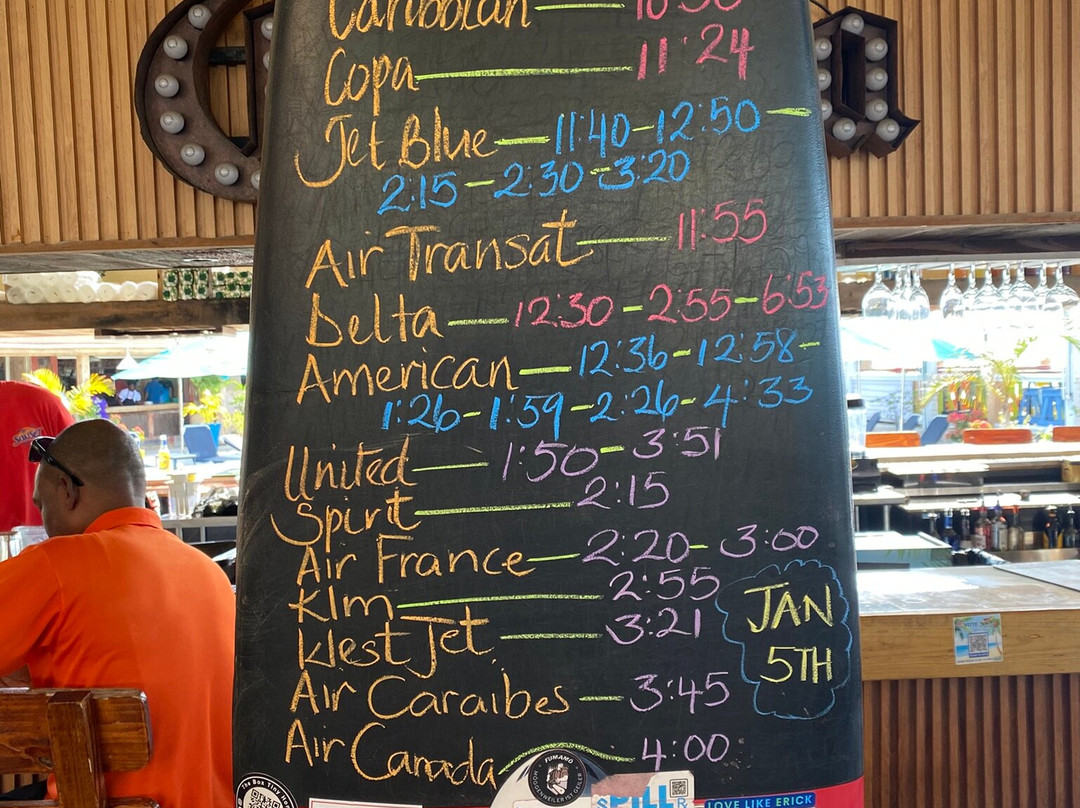 Caribbean — 10:50
Copa — 11:24
Jet Blue — 11:40 - 12:50 -
2:15 - 2:30 - 3:20
Air Transat — 11:55
Delta — 12:30 - 2:55 - 6:53
American — 12:36 - 12:58 -
1:26 - 1:59 - 2:26 - 4:33
United — 1:50 - 3:51
Spirit — 2:15
Air France — 2:20 - 3:00
Klm — 2:55
West Jet — 3:21
Air Caraibes — 3:45
Air Canada — 4:00
JAN
5TH
FUMANO
MOGGENWEILER IST GEILER
The Box Tiny
SPILL
LOVE LIKE ERICK